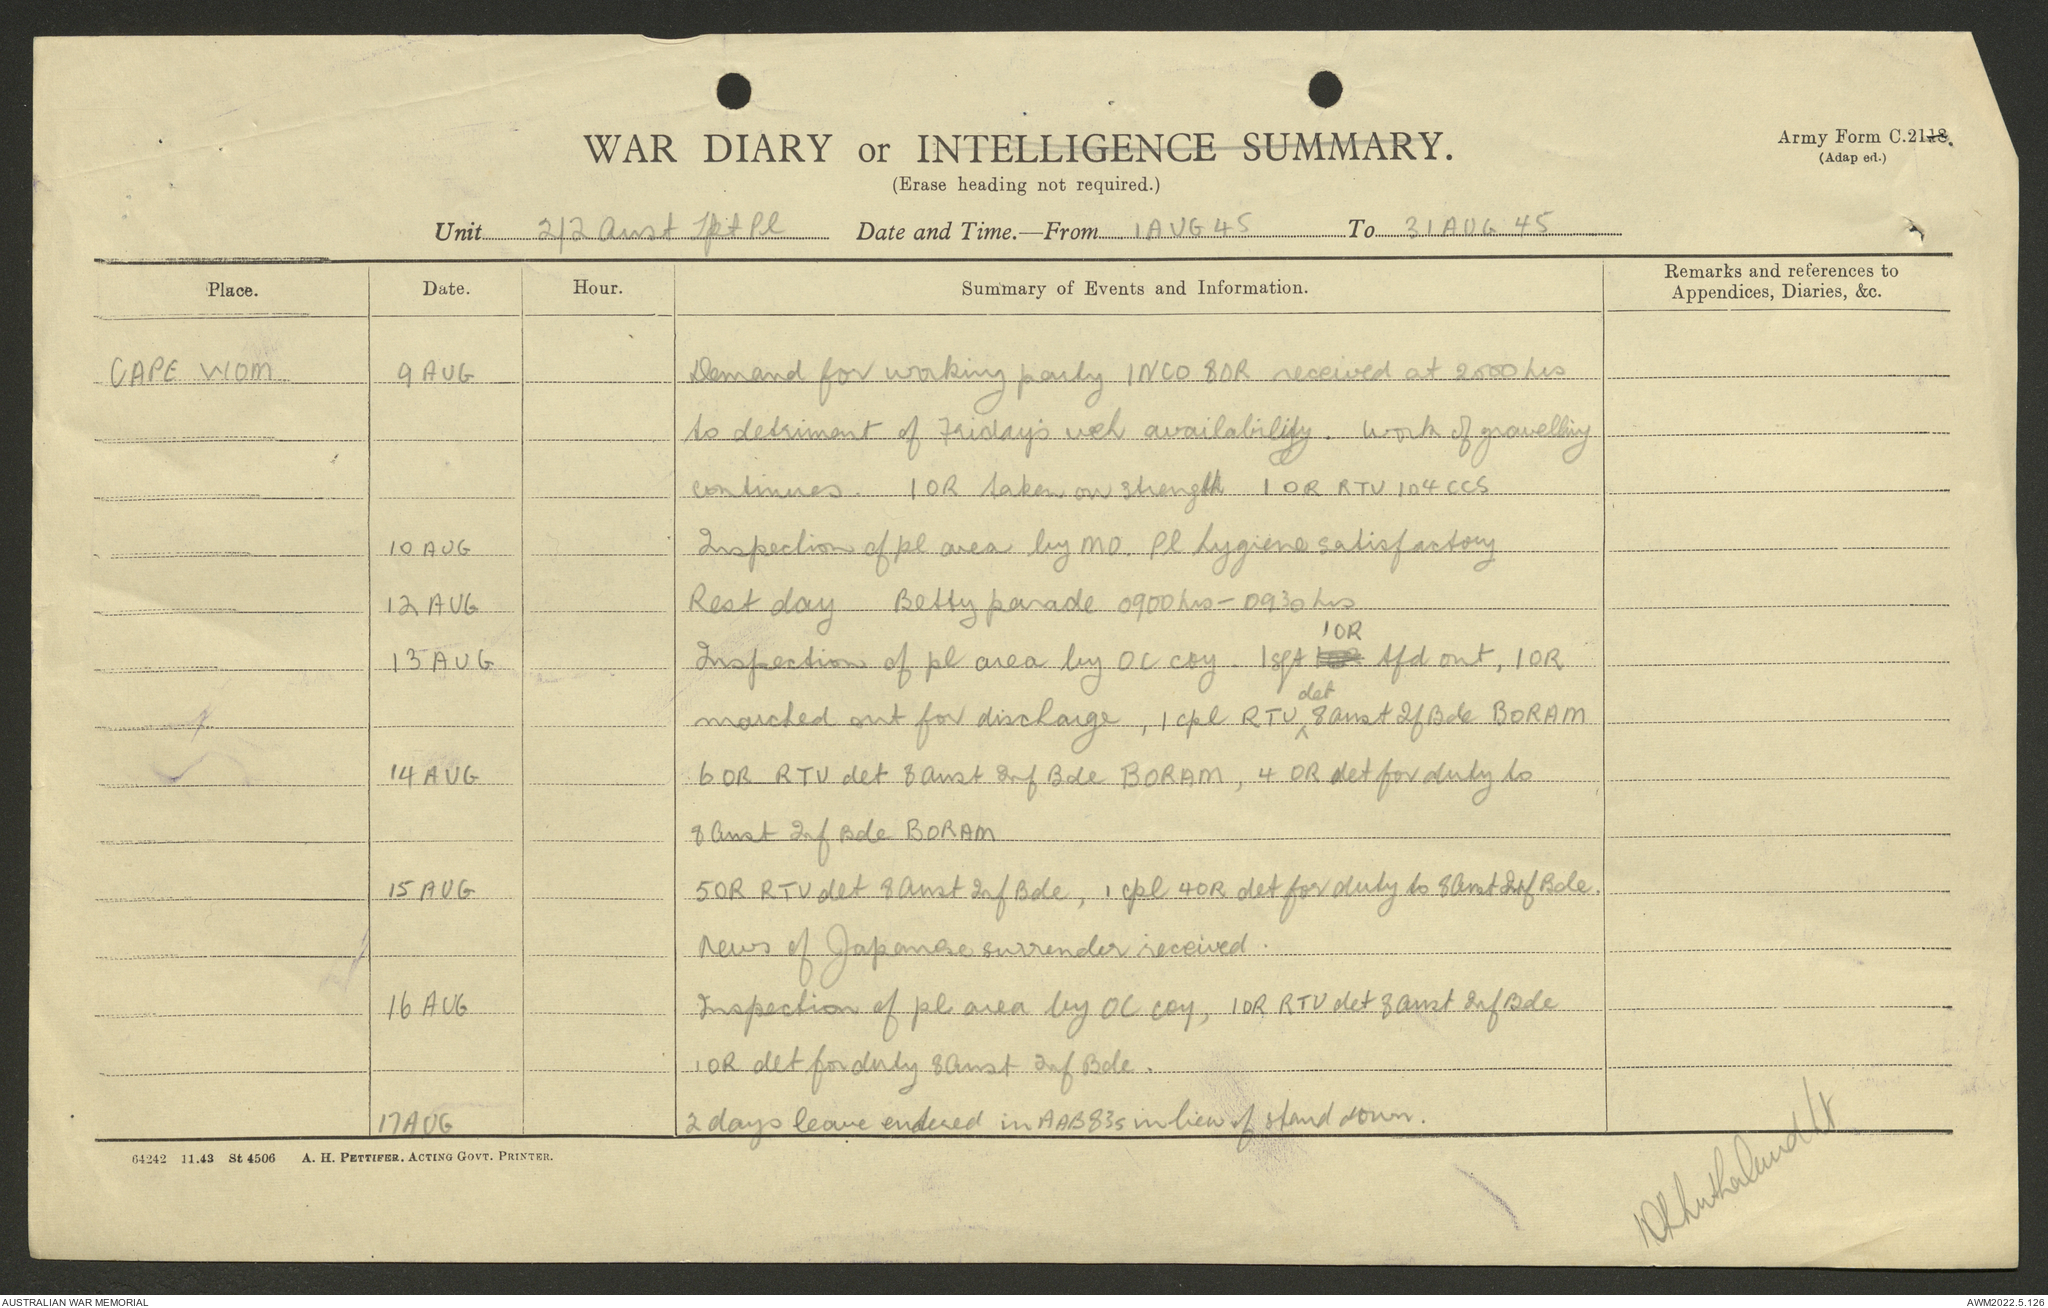 WAR DIARY or INTELLIGENCE SUMMARY.
(Erase heading not required.)
Army Form C.2118.
(Adap ed.)
Unit 2/2 Aust Tpt Pl Date and Time.—From 1 AUG 45 To 31 AUG 45
Place. Date. Hour. Summary of Events and Information. Remarks and references to
Appendices, Diaries, &c.
CAPE WOM 9 AUG Demand for working party 1NCO 8OR received at 2000 hrs
to detriment of Friday's veh availability. Work of gravelling
continues. 1 OR taken on strength 1 OR RTU 104 CCS
10 AUG Inspection of pl area by MO. Pl hygiene satisfactory
12 AUG Rest day Betty parade 0900 hrs - 0930 hrs
1OR
13 AUG Inspection of pl area by OC coy. 1 sgt 1OR tfd out, 1 OR
det
marched out for discharge, 1 cpl RTU ^ 8 Aust If Bde BORAM
14 AUG 6 OR RTU det 8 Aust Inf Bde BORAM, 4 OR det for duty to
8 Aust Inf Bde BORAM
15 AUG 5OR RTU det 8 Aust Inf Bde, 1 cpl 4OR det for duty to 8 Aust Inf Bde.
News of Japanese surrender received.
16 AUG Inspection of pl area by OC coy, 1OR RTU det 8 Aust Inf Bde
1OR det for duty 8 Aust Inf Bde.
17 AUG 2 days leave entered in AAB83s in lieu of stand down.
64242 11.43 St 4506 A. H. PETTIFER, ACTING GOVT. PRINTER.
Lt
AUSTRALIAN WAR MEMORIAL AWM2022.5.126